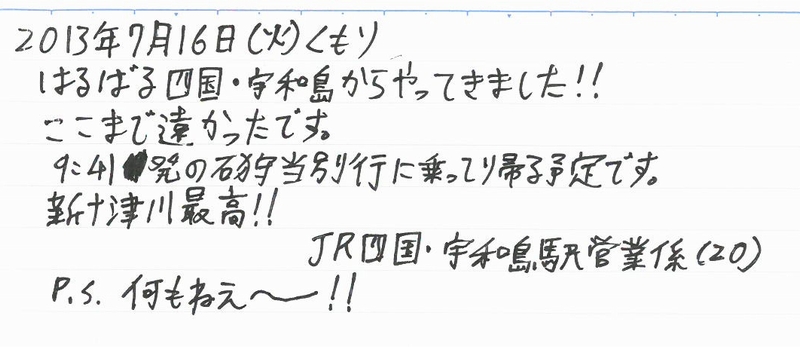 2013年7月16日(火)くもり
はるばる四国・宇和島からやってきました!!
ここまで遠かったです。
9:41発の石狩当別行に乗って帰る予定です。
新十津川最高!!
JR四国・宇和島駅営業係(20)
P.S. 何もねえ〜!!